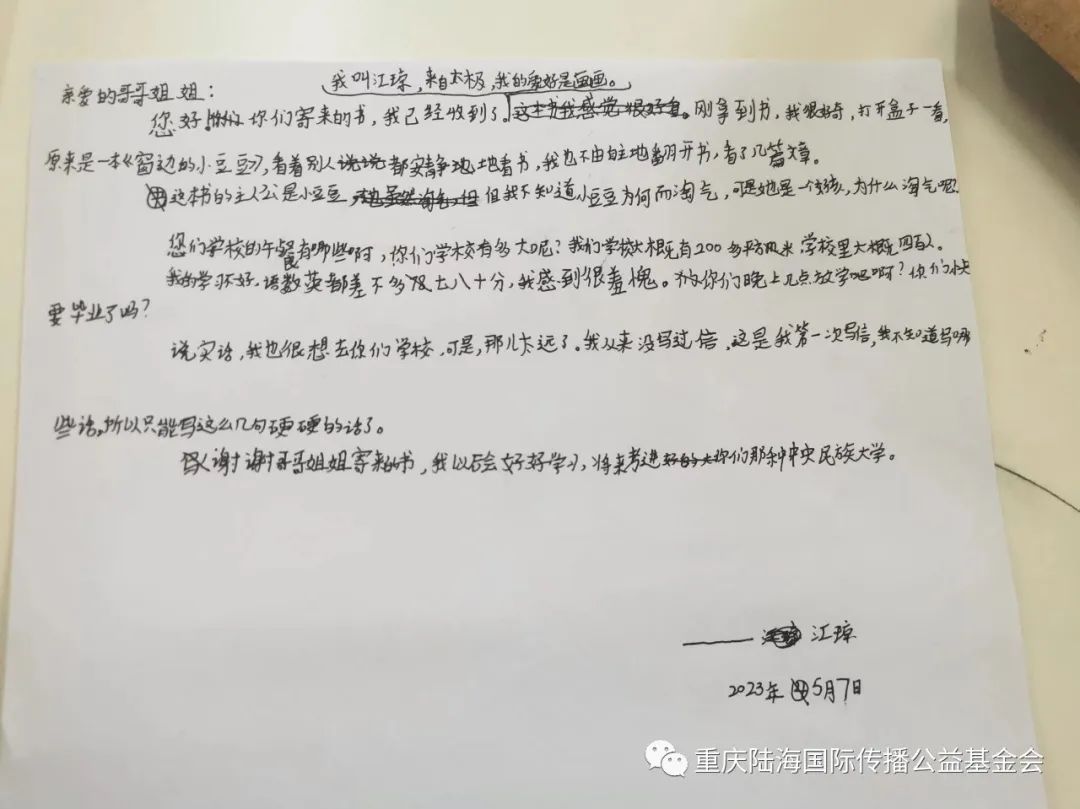 我叫江琼，来自太极，我的爱好是画画。
亲爱的哥哥姐姐：
您好！你们寄来的书，我已经收到了。这本书我感觉很好看。刚拿到书，我很好奇，打开盒子一看，
原来是一本《窗边的小豆豆》，看着别人说说都安静地地看书，我也不由自主地翻开书，看了几篇文章。
这本书的主人公是小豆豆，她虽然淘气，但 但我不知道小豆豆为何而淘气，可是她是一个孩，为什么淘气呢
您们学校的午餐有哪些啊，你们学校有多大呢？我们学校大概有200多平方米 学校里大概四百人。
我的学习不好，语数英都差不多及七八十分，我感到很羞愧。你们晚上几点放学吧啊？你们
要毕业了吗？
说实话，我也很想去你们学校，可是，那儿太远了。我从来没写过信，这是我第一次写信，我不知道写哪
些话，所以只能写这么几句硬硬的话了。
谢谢哥哥姐姐寄来的书，我以后会好好学习，将来考进你们那种中央民族大学。
—— 江琼
2023年5月7日
重庆陆海国际传播公益基金会